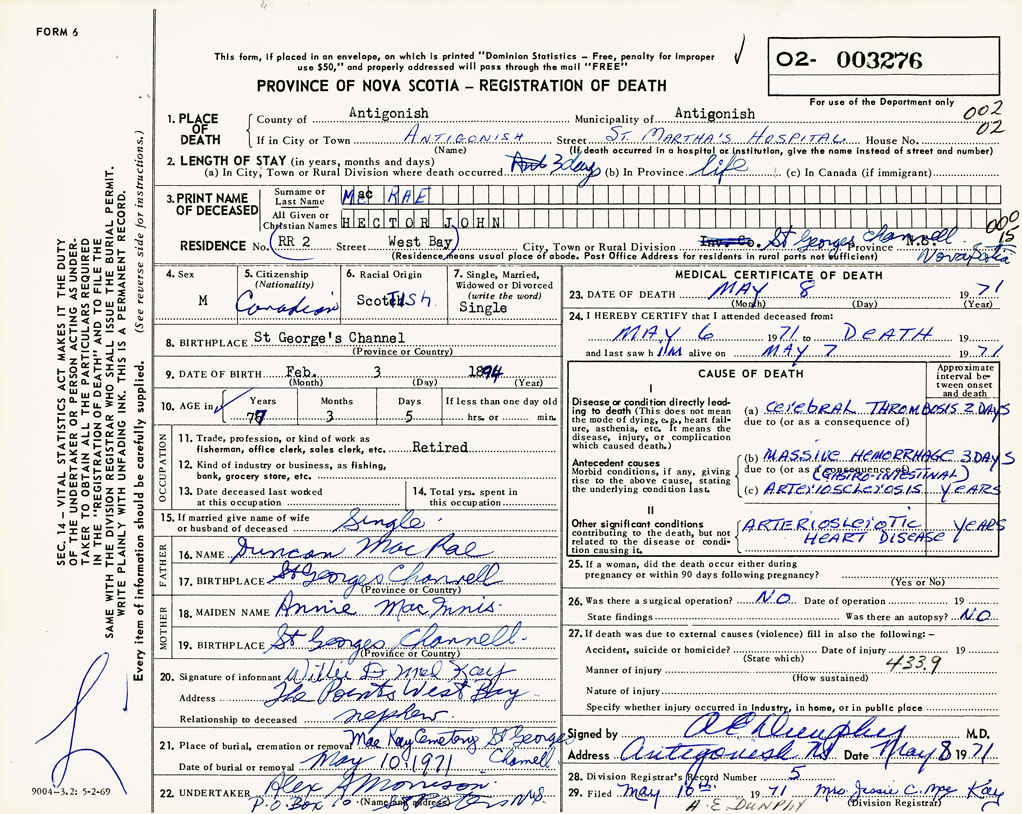 FORM 6
This form, if placed in an envelope, on which is printed "Dominion Statistics – Free, penalty for improper
use $50," and properly addressed will pass through the mail "FREE"
02- 003276
PROVINCE OF NOVA SCOTIA – REGISTRATION OF DEATH
For use of the Department only
002
02
1. PLACE OF DEATH
County of Antigonish Municipality of Antigonish
If in City or Town ANTIGONISH Street ST. MARTHA'S HOSPITAL House No.
(Name) (If death occurred in a hospital or institution, give the name instead of street and number)
2. LENGTH OF STAY (in years, months and days)
(a) In City, Town or Rural Division where death occurred 3 days (b) In Province life (c) In Canada (if immigrant)
3. PRINT NAME OF DECEASED
Surname or Last Name Mac RAE
All Given or Christian Names HECTOR JOHN
RESIDENCE No. RR 2 Street West Bay City, Town or Rural Division Inv. Co. St Georges Channell Province N.S. Nova Scotia
(Residence means usual place of abode. Post Office Address for residents in rural parts not sufficient)
4. Sex M
5. Citizenship (Nationality) Canadian
6. Racial Origin Scotch
7. Single, Married, Widowed or Divorced (write the word) Single
8. BIRTHPLACE St George's Channel
(Province or Country)
9. DATE OF BIRTH Feb. 3 1894
(Month) (Day) (Year)
10. AGE in Years Months Days If less than one day old
77 3 5 hrs. or min.
OCCUPATION
11. Trade, profession, or kind of work as fisherman, office clerk, sales clerk, etc. Retired
12. Kind of industry or business, as fishing, bank, grocery store, etc.
13. Date deceased last worked at this occupation
14. Total yrs. spent in this occupation
15. If married give name of wife or husband of deceased Single
FATHER
16. NAME Duncan MacRae
17. BIRTHPLACE St Georges Channell
(Province or Country)
MOTHER
18. MAIDEN NAME Annie MacInnis
19. BIRTHPLACE St Georges Channell
(Province or Country)
20. Signature of informant Willie D McKay
Address The Points West Bay
Relationship to deceased nephew
21. Place of burial, cremation or removal MacKay Cemetery St Georges Channell
Date of burial or removal May 10 1971
22. UNDERTAKER Alex A Morrison
P.O Box 10 St Peters N.S.
(Name and address)
MEDICAL CERTIFICATE OF DEATH
23. DATE OF DEATH MAY 8 1971
(Month) (Day) (Year)
24. I HEREBY CERTIFY that I attended deceased from:
MAY 6 1971 to DEATH 19
and last saw h IM alive on MAY 7 1971
CAUSE OF DEATH
Approximate interval between onset and death
I
Disease or condition directly leading to death (This does not mean the mode of dying, e.g., heart failure, asthenia, etc. It means the disease, injury, or complication which caused death.)
(a) CEREBRAL THROMBOSIS 2 DAYS
due to (or as a consequence of)
Antecedent causes
Morbid conditions, if any, giving rise to the above cause, stating the underlying condition last.
(b) MASSIVE HEMORRHAGE 3 DAYS
due to (or as a consequence of)
(GASTRO-INTESTINAL)
(c) ARTERIOSCLEROSIS YEARS
II
Other significant conditions contributing to the death, but not related to the disease or condition causing it.
ARTERIOSLEIOTIC YEARS
HEART DISEASE
25. If a woman, did the death occur either during pregnancy or within 90 days following pregnancy?
(Yes or No)
26. Was there a surgical operation? NO Date of operation 19
State findings Was there an autopsy? NO
27. If death was due to external causes (violence) fill in also the following: –
Accident, suicide or homicide? Date of injury 19
(State which) 433.9
Manner of injury
(How sustained)
Nature of injury
Specify whether injury occurred in industry, in home, or in public place
Signed by A E Dunphy M.D.
Address Antigonish NS Date May 8 1971
28. Division Registrar's Record Number 5
29. Filed May 10th 1971 Mrs. Jessie C. Kay
A. E. DUNPHY (Division Registrar)
SEC. 14 – VITAL STATISTICS ACT MAKES IT THE DUTY
OF THE UNDERTAKER OR PERSON ACTING AS UNDER-
TAKER TO OBTAIN ALL THE PARTICULARS REQUIRED
IN THE "REGISTRATION OF DEATH" AND TO FILE THE
SAME WITH THE DIVISION REGISTRAR WHO SHALL ISSUE THE BURIAL PERMIT.
WRITE PLAINLY WITH UNFADING INK. THIS IS A PERMANENT RECORD.
Every item of information should be carefully supplied. (See reverse side for instructions.)
9004-3.2: 5-2-69